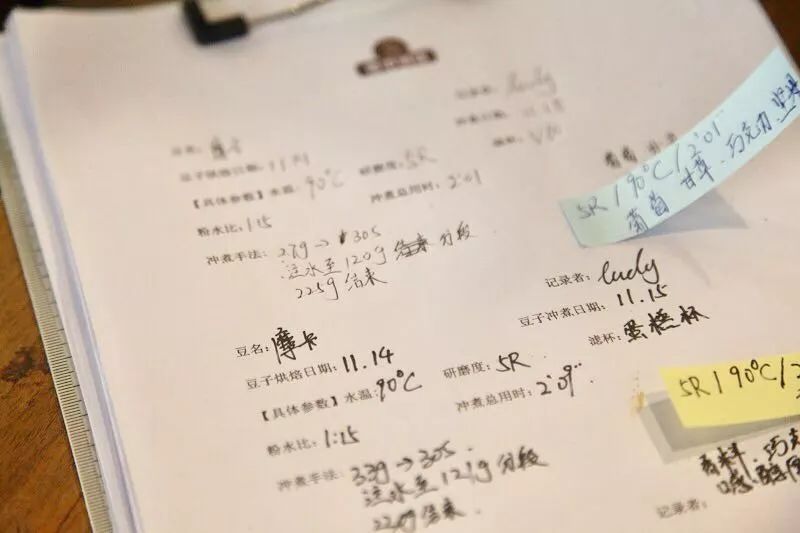 记录者: lucly
豆名: 摩卡
豆子烘焙日期: 11.11
研磨度: 5R
【具体参数】水温: 90℃
冲煮总用时: 2'01
粉水比: 1:15
冲煮手法: 27g→30s
注水至120g 分段
225g 结束
5R / 90℃ / 2'01"
葡萄 甘草、巧克力
记录者: lucly
豆子冲煮日期: 11.15
滤杯: 蛋糕杯
豆名: 摩卡
豆子烘焙日期: 11.14
研磨度: 5R
【具体参数】水温: 90℃
冲煮总用时: 2'09"
粉水比: 1:15
冲煮手法: 33g→30s
注水至121g 分段
220g 结束
5R / 90℃ /
香料、巧
记录者: